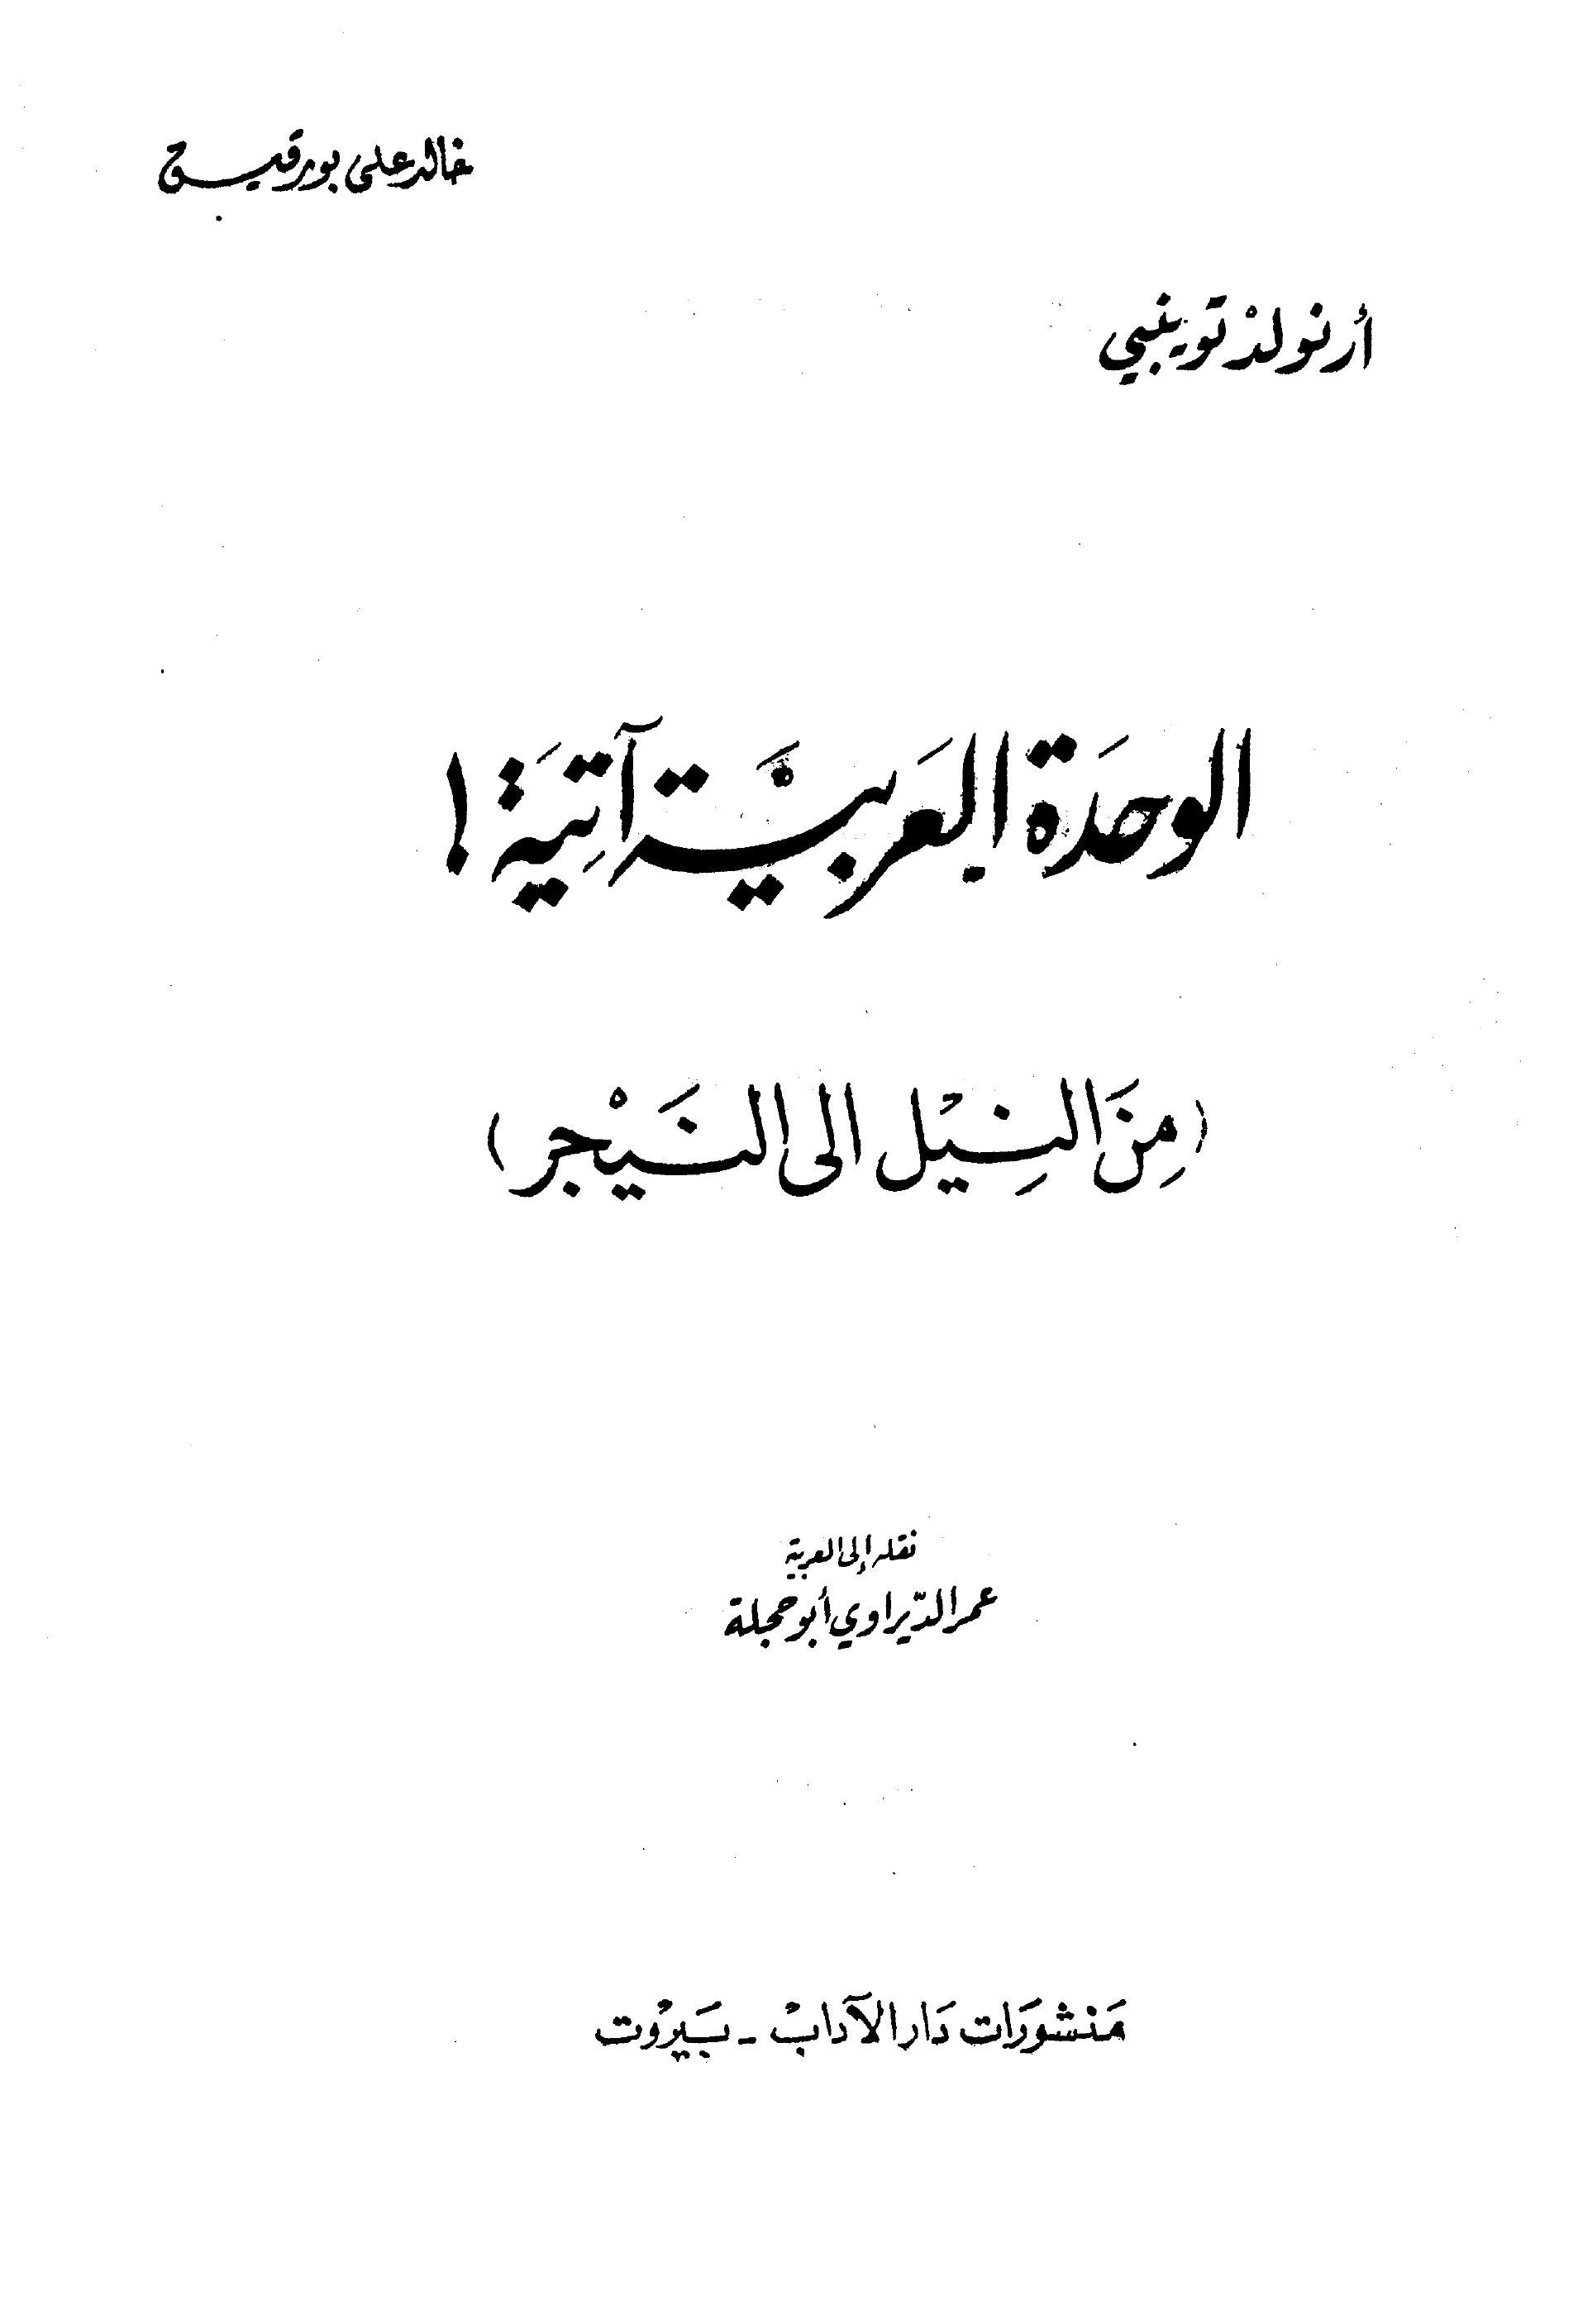 خالد علي بورقيبة
أرنولدْ توينبي
الوحدَة العَربيَّة آتِيَة !
(مِنَ النِيْل الى النَيْجر)
نقله إلى العربية
عمر الدّيراوي أبو حجلة
مَنشورَات دَار الآدابْ - بَيرْوت